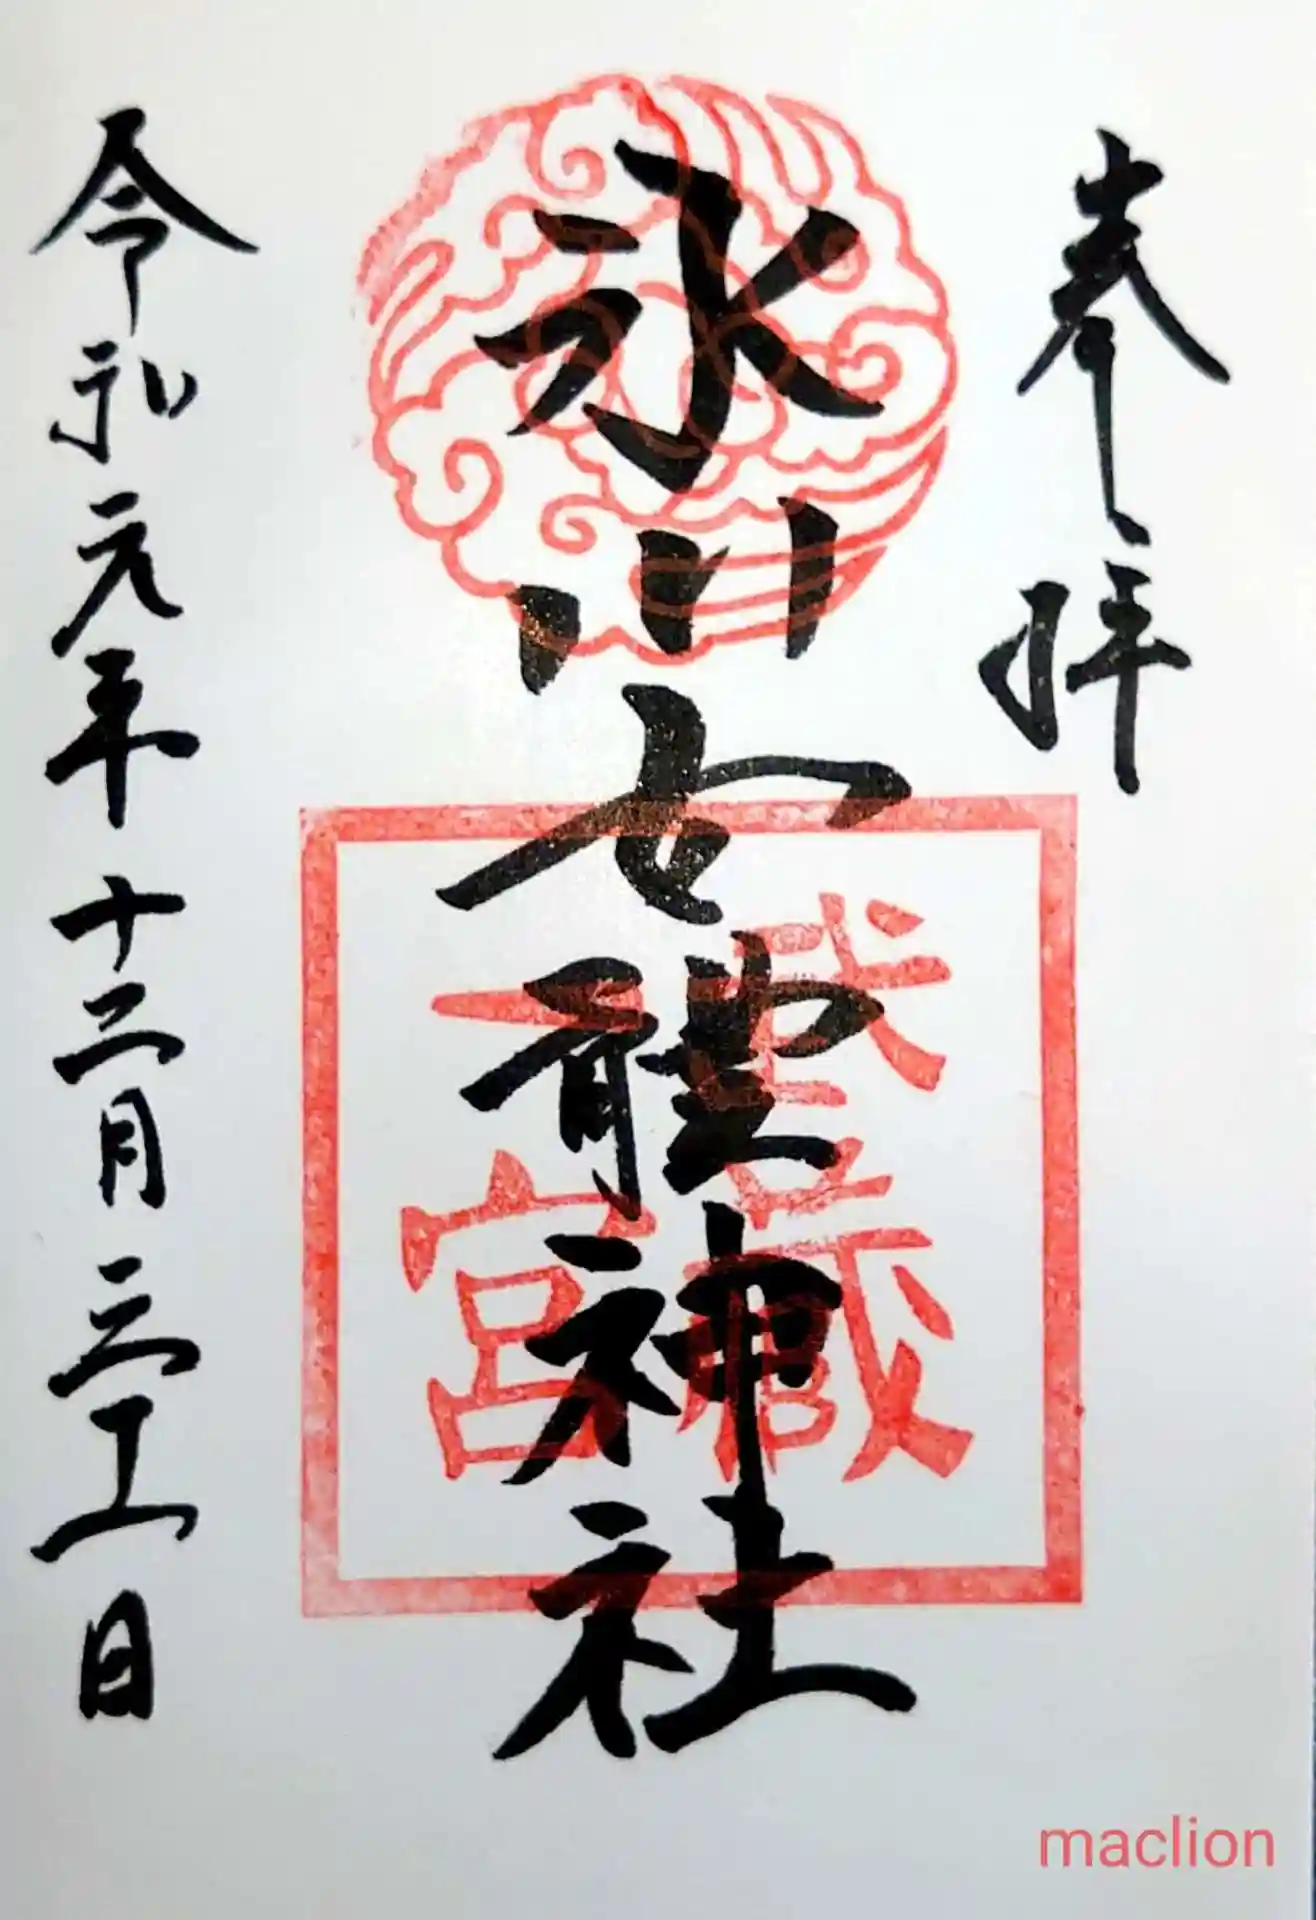 奉拝
氷川女體神社
武藏
一宮
令和元年十二月三十一日
maclion